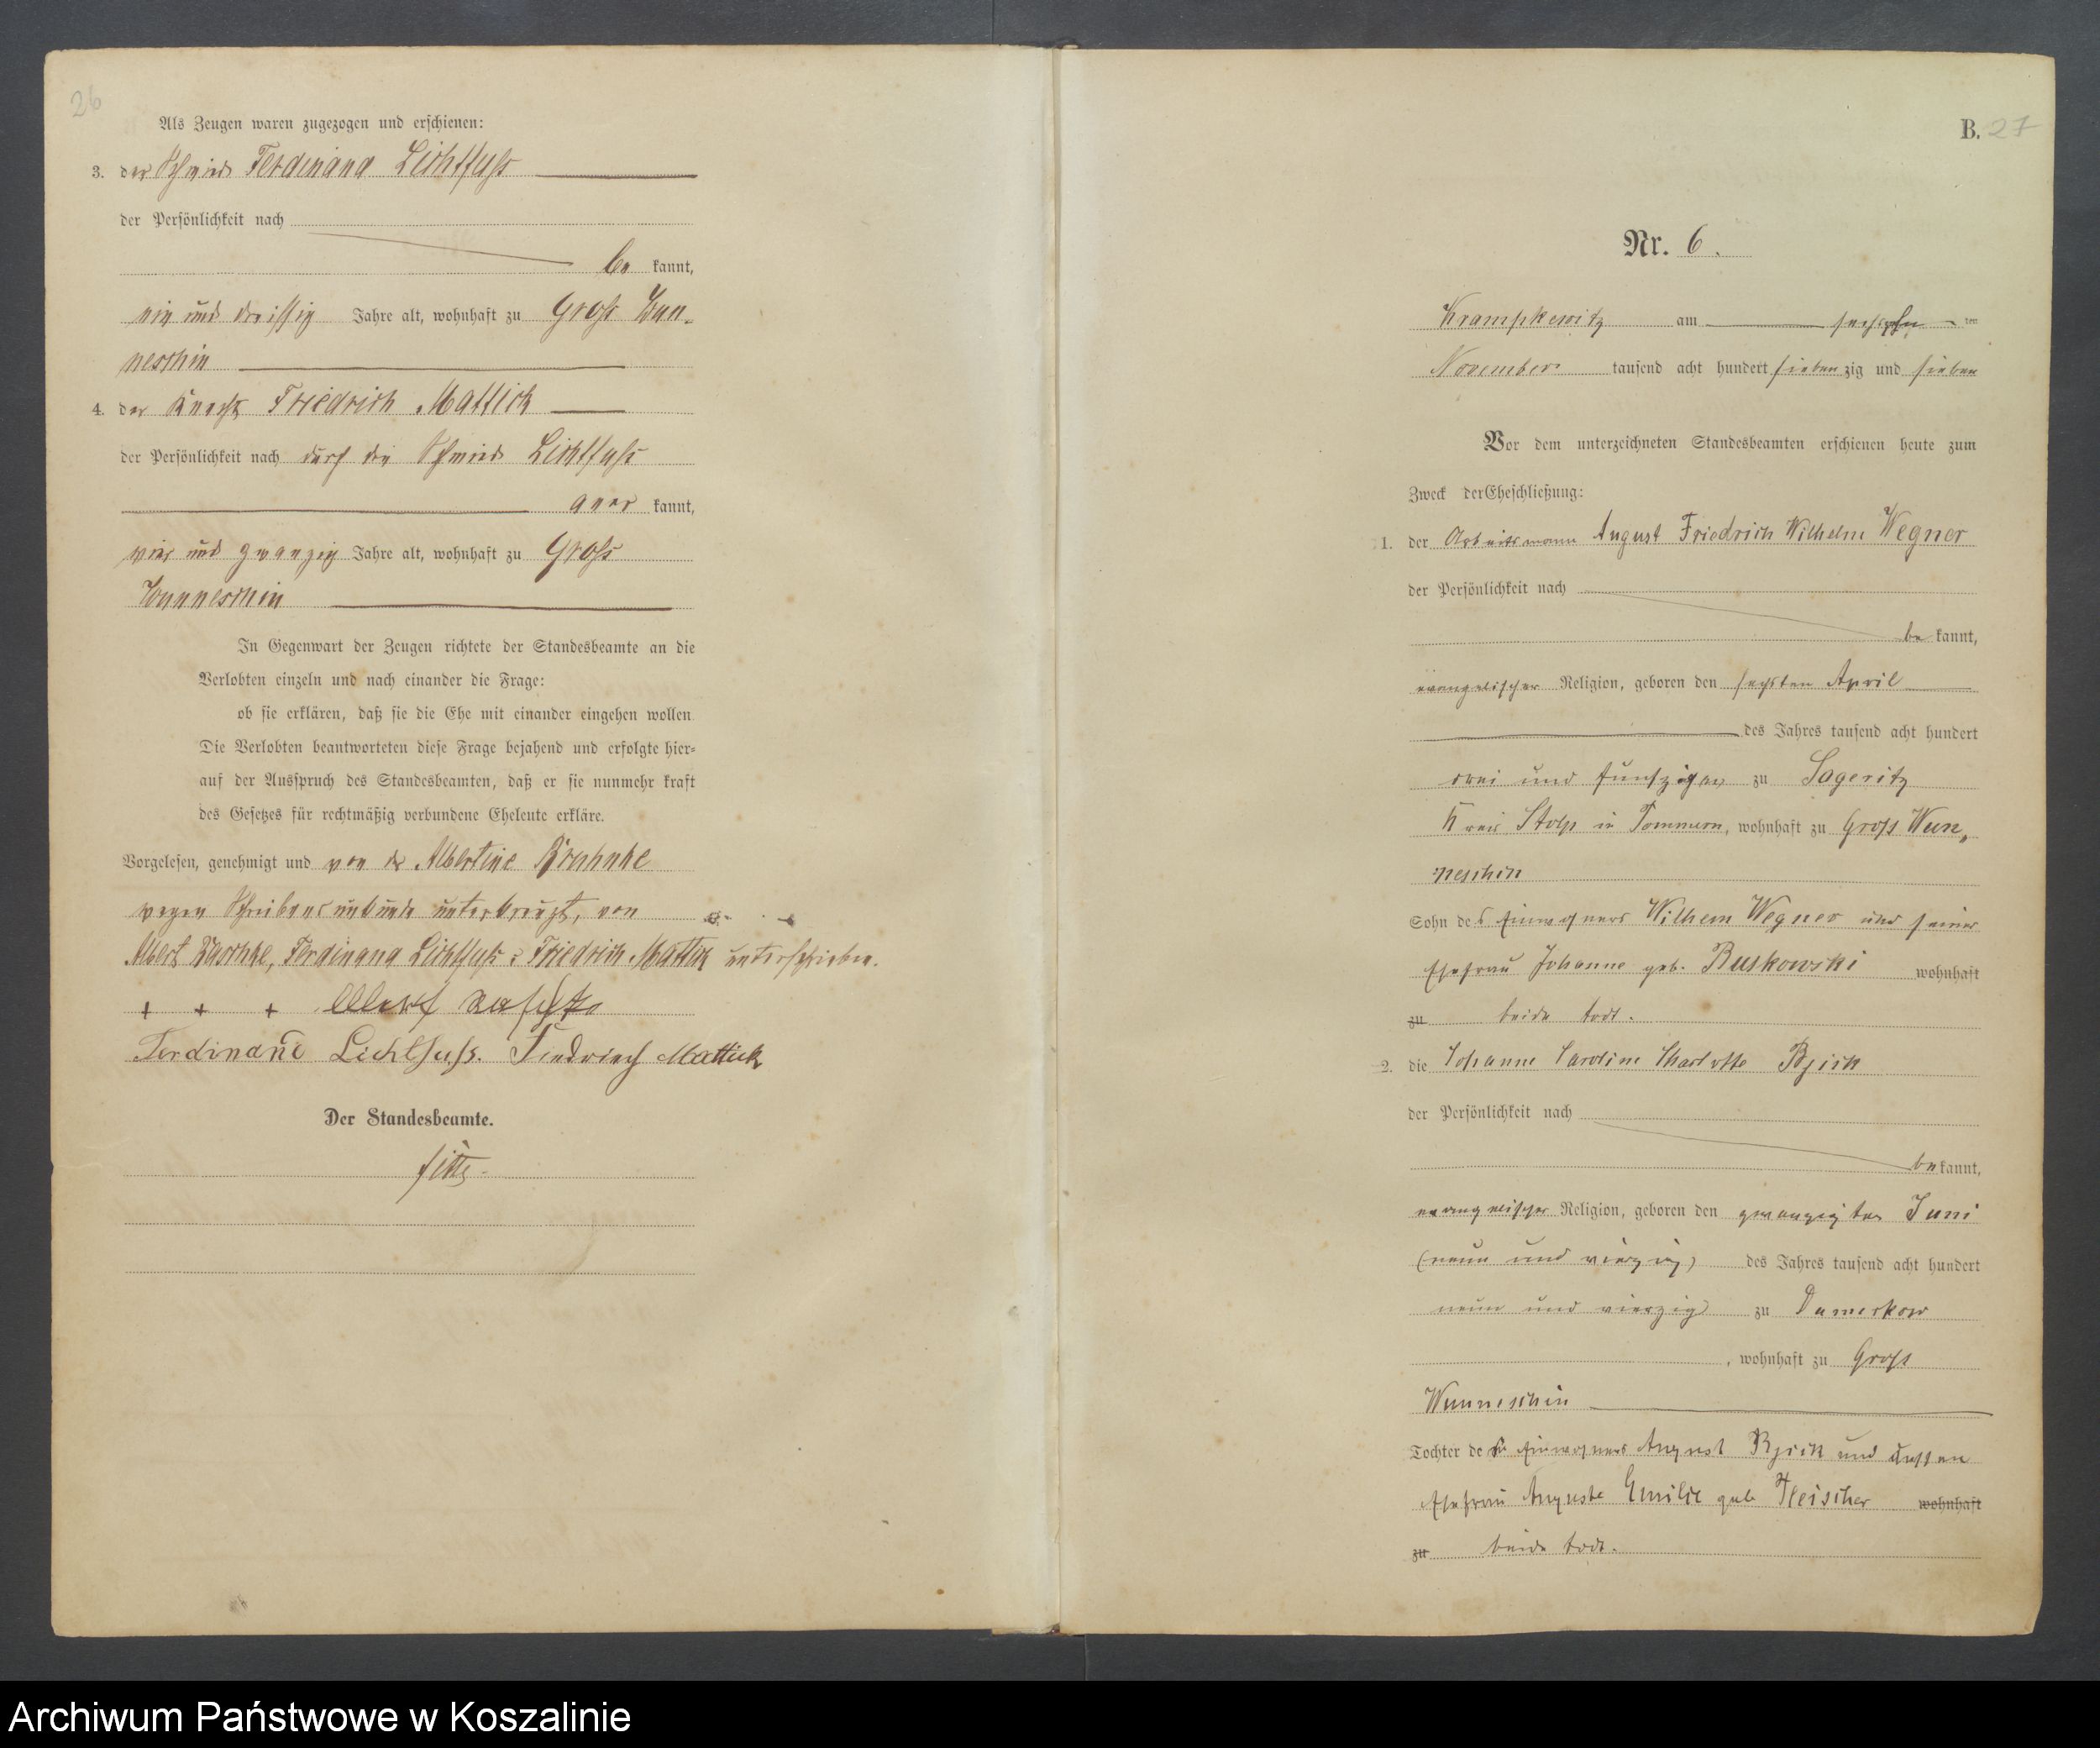 26
Als Zeugen waren zugezogen und erschienen:
3. der Schmied Ferdinand Lichtfuss
der Persönlichkeit nach
be kannt,
ein und dreissig Jahre alt, wohnhaft zu Gross Wun-
neschin
4. der Knecht Friedrich Mattick
der Persönlichkeit nach durch den Schmied Lichtfuss
aner kannt,
vier und zwanzig Jahre alt, wohnhaft zu Gross
Wunneschin
In Gegenwart der Zeugen richtete der Standesbeamte an die
Verlobten einzeln und nach einander die Frage:
ob sie erklären, daß sie die Ehe mit einander eingehen wollen.
Die Verlobten beantworteten diese Frage bejahend und erfolgte hier-
auf der Ausspruch des Standesbeamten, daß er sie nunmehr kraft
des Gesetzes für rechtmäßig verbundene Eheleute erkläre.
Vorgelesen, genehmigt und von der Albertine
wegen Schreibensunkunde unterkreuzt, von
Albert Raschke, Ferdinand Lichtfuss u. Friedrich Mattick unterschrieben.
+ + + Albert Raschke
Ferdinand Lichtfuss. Friedrich Mattick
Der Standesbeamte.
B. 27
Nr. 6.
Krampkewitz am sechszehn ten
November tausend acht hundert sieben zig und sieben
Vor dem unterzeichneten Standesbeamten erschienen heute zum
Zweck der Eheschließung:
1. der Arbeitsmann August Friedrich Wilhelm Wegner
der Persönlichkeit nach
be kannt,
evangelischer Religion, geboren den sechsten April
des Jahres tausend acht hundert
drei und funfzig zu Sageritz
Kreis Stolp in Pommern, wohnhaft zu Gross Wun-
neschin
Sohn des Einwohners Wilhem Wegner und seiner
Ehefrau Johanne geb. Buskowski wohnhaft
zu beide todt.
2. die Johanne Caroline Charlotte Bjick
der Persönlichkeit nach
be kannt,
evangelischer Religion, geboren den zwanzigten Juni
(neun und vierzig) des Jahres tausend acht hundert
neun und vierzig zu Damerkow
, wohnhaft zu Gross
Wunneschin
Tochter des Einwohners August Bjick und dessen
Ehefrau Auguste Emilie geb Fleischer wohnhaft
zu beide todt.
Archiwum Państwowe w Koszalinie